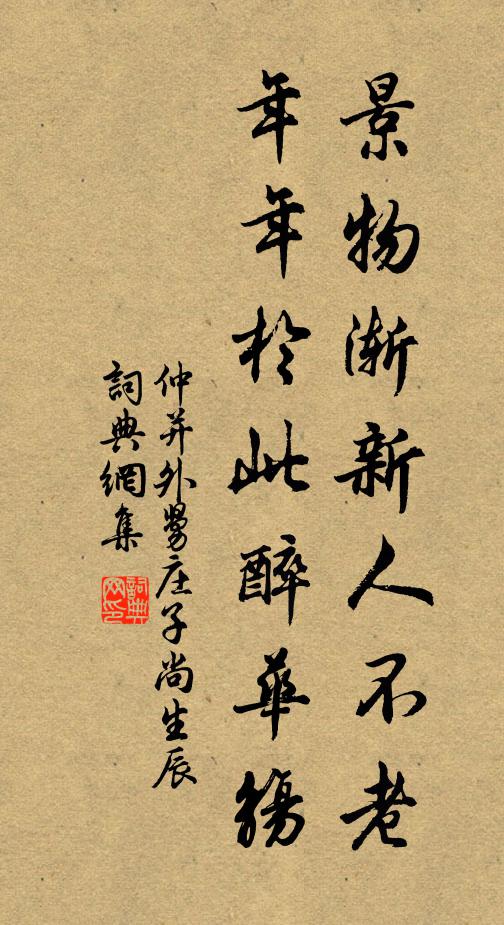 景物漸新人不老
年年於此醉華觴
仲并外舅庄子尚生辰
詞典網集
詞典網印